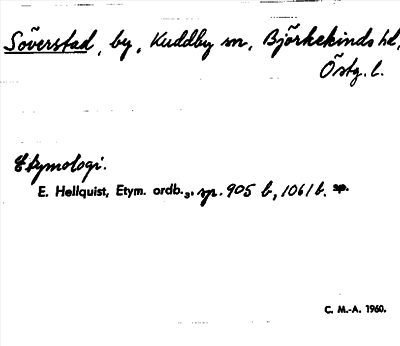 Söverstad, by, Kuddby sn, Björkekinds hd,
Östg. l.
Etymologi.
E. Hellquist, Etym. ordb.₃, sp. 905 b, 1061 b. sp.
C. M.-A. 1960.